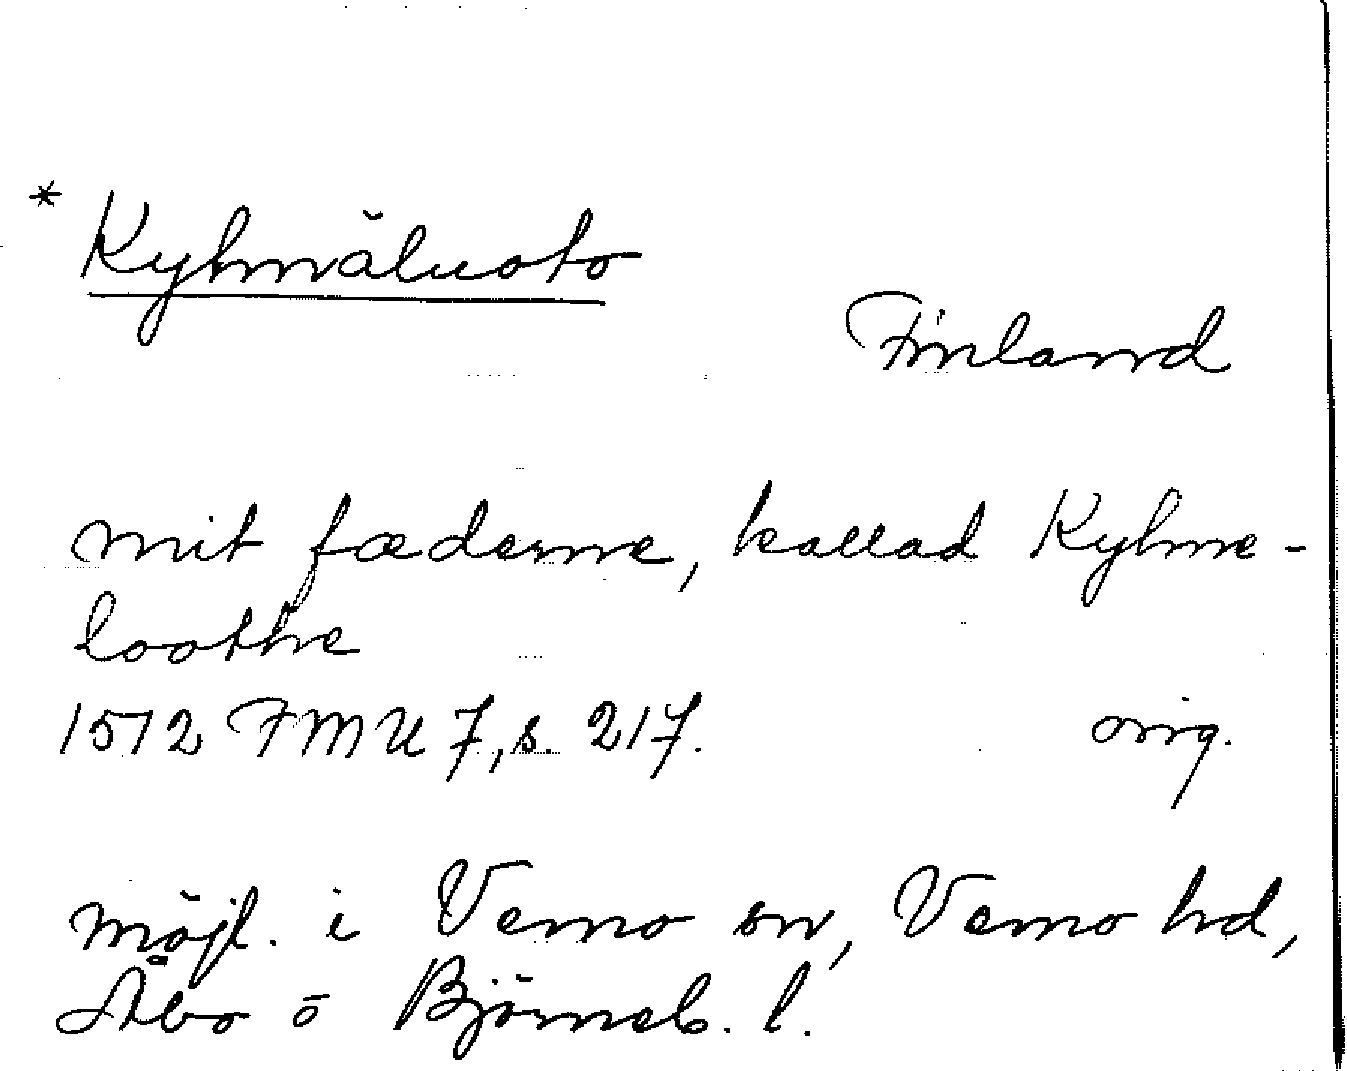 * Kyhmäluoto
Finland
mit fæderne, kallad Kyhme-
loothe
1512 FMU 7, s. 217. orig.
möjl. i Vemo sn, Vemo hd,
Åbo o Björneb. l.